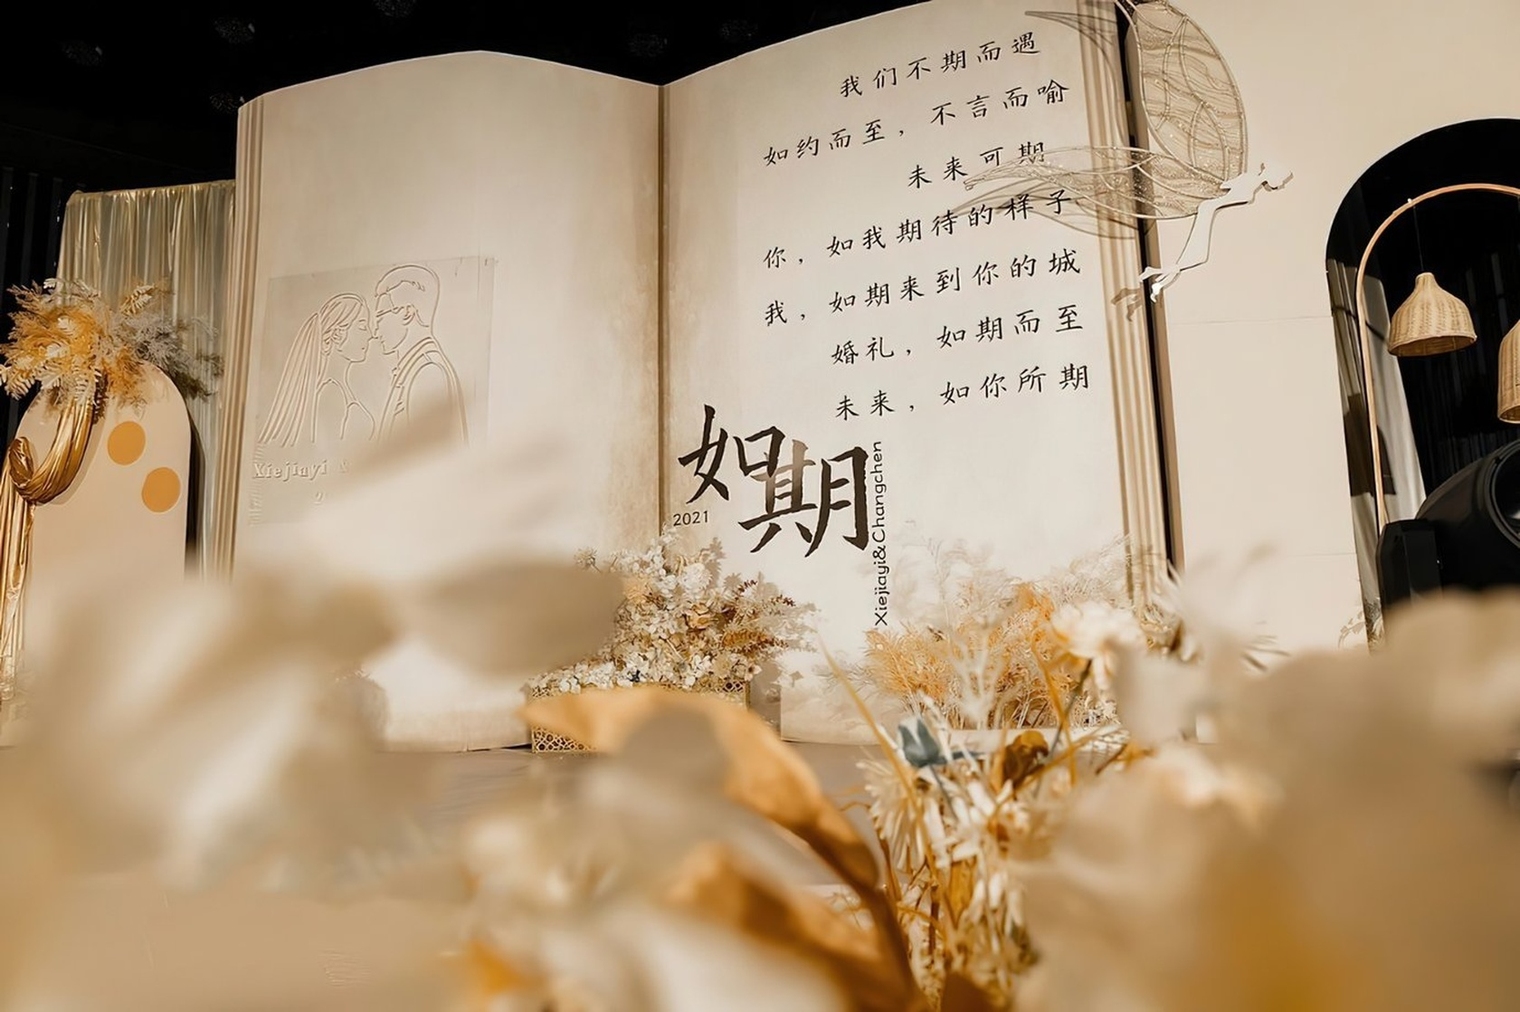 Xiejiayi &
我们不期而遇
如约而至，不言而喻
未来可期
你，如我期待的样子
我，如期来到你的城
婚礼，如期而至
未来，如你所期
如期
2021
Xiejiayi&Changchen